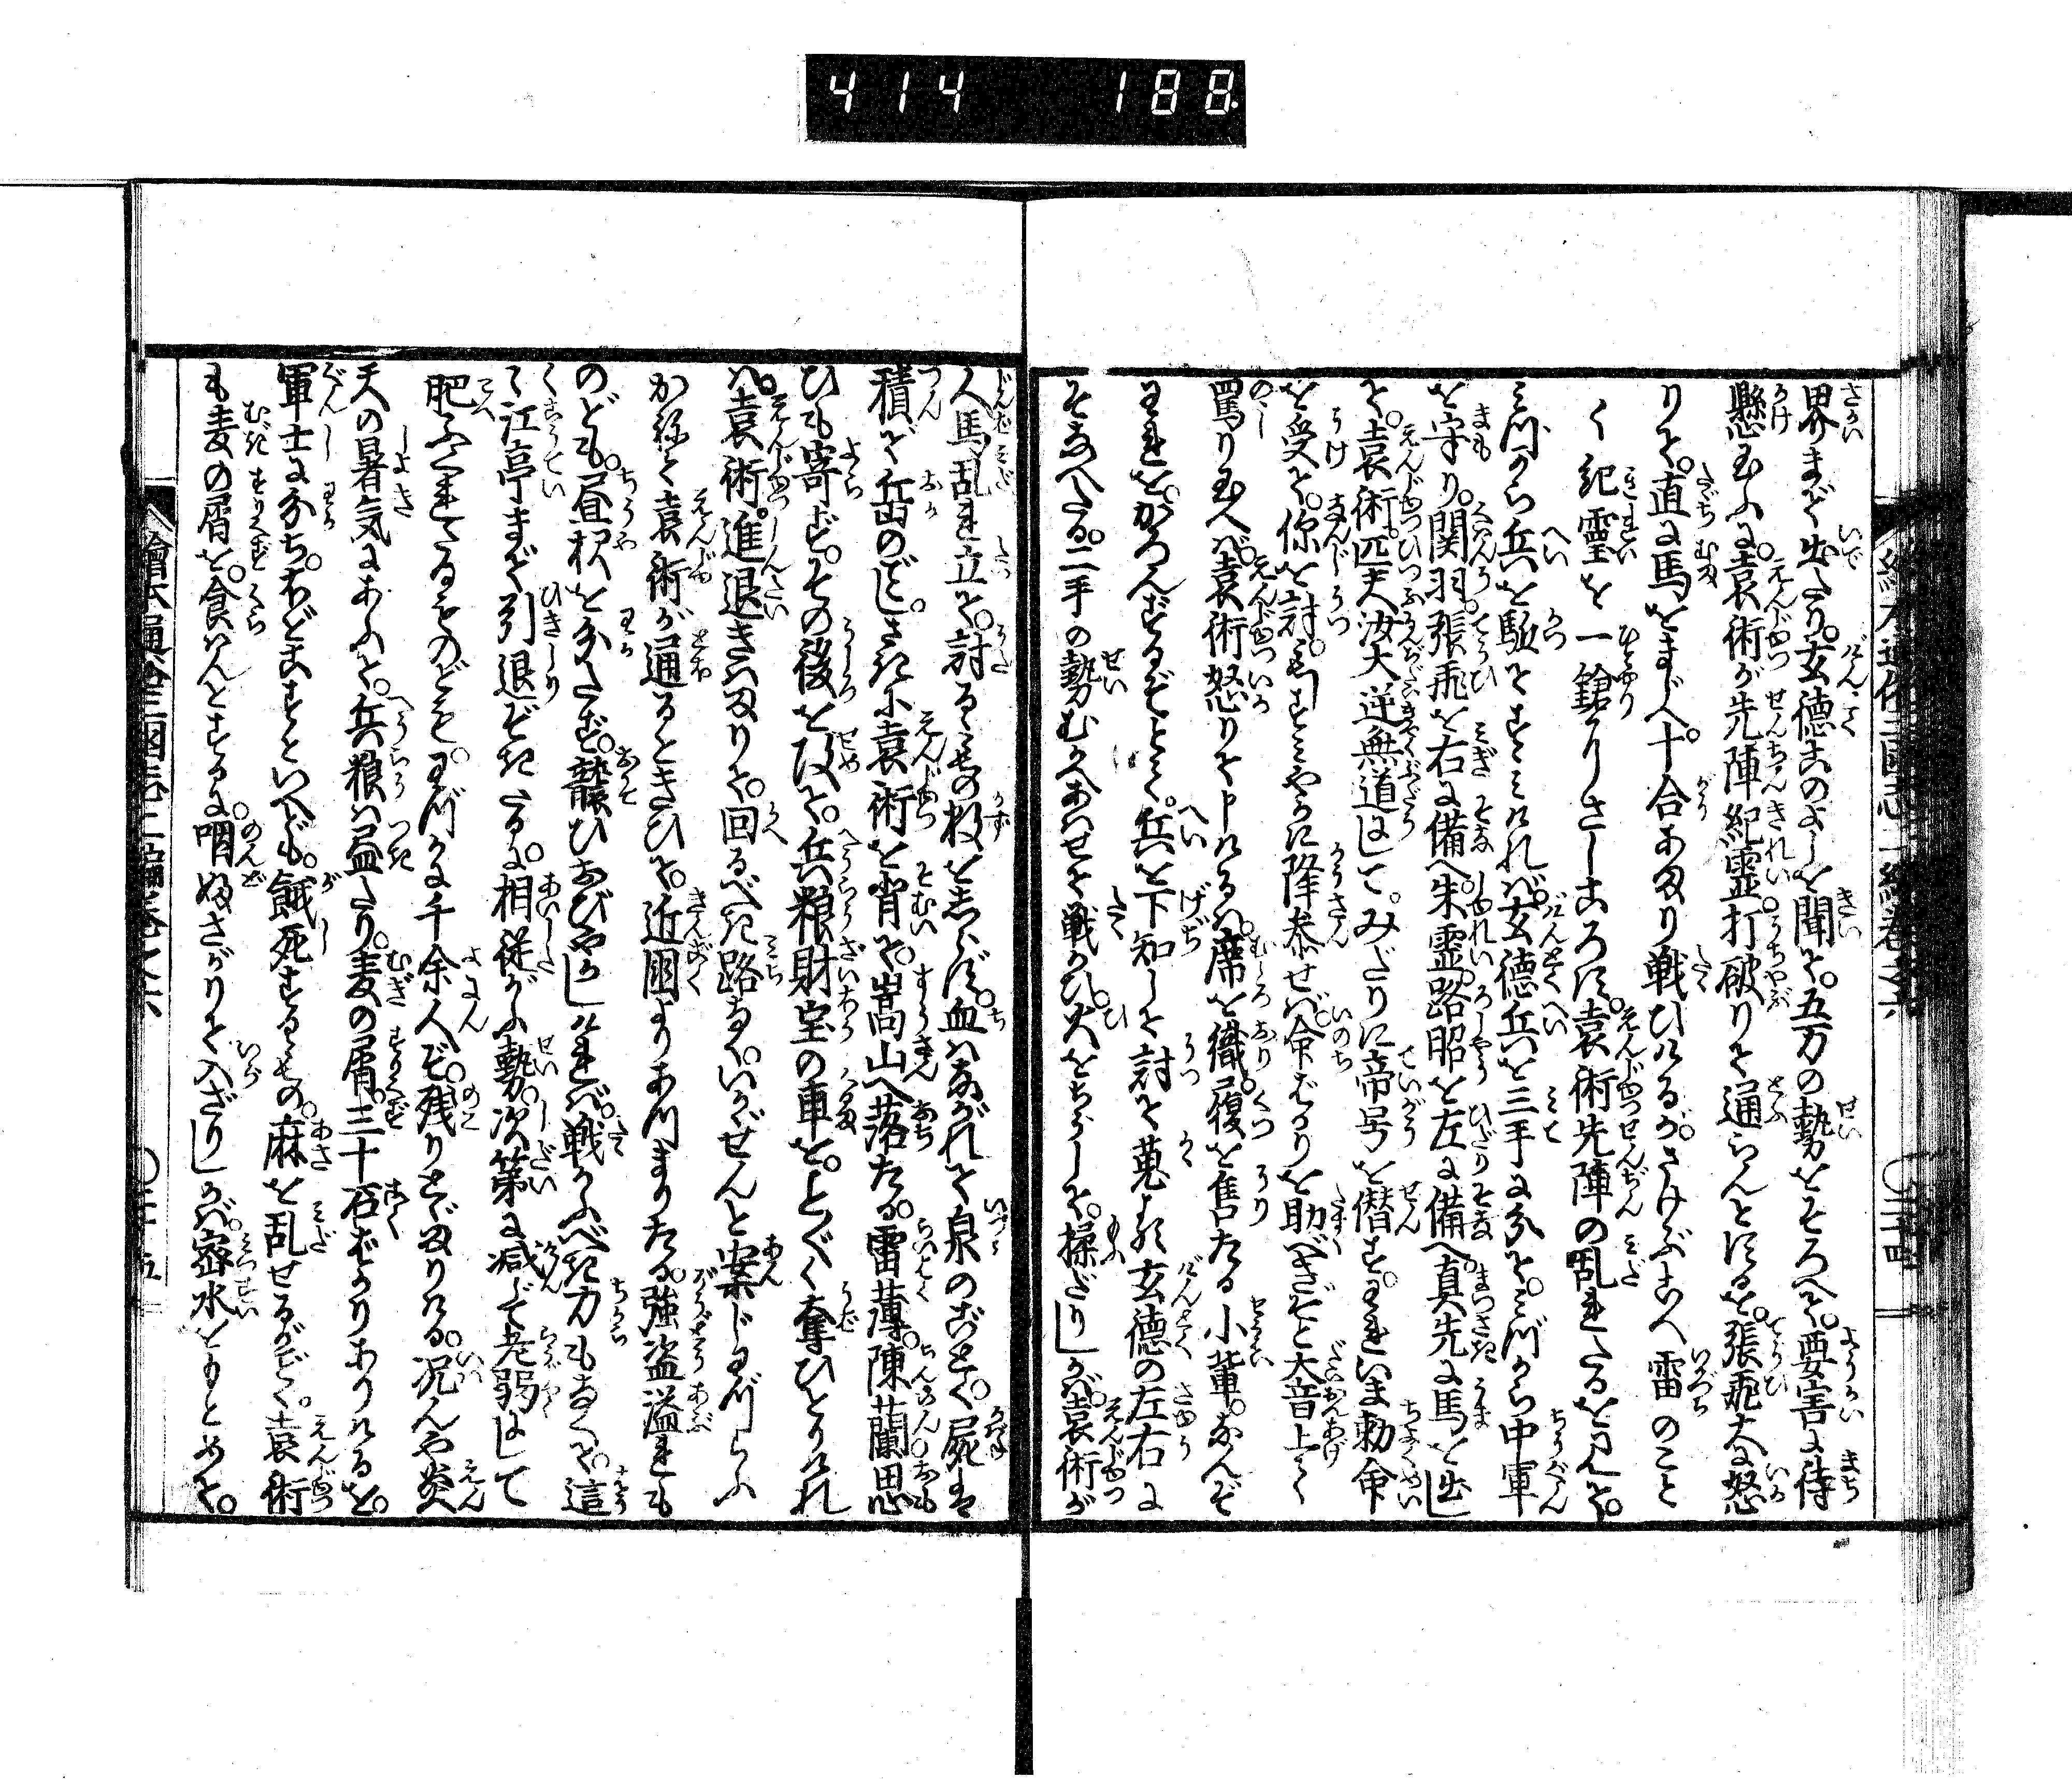 414 188
繪本通俗三國志二編巻之六 〇二十四
界まで出たり。玄徳このよしを聞て。五万の勢をそろへて。要害に待
懸玉ふに。袁術が先陣紀霊打破りて通らんとするを。張飛大に怒
りて。直に馬をまじへ十合あまり戦ひけるが。さけぶこゑ雷のこと
く紀霊を一鎗りさしころす。袁術先陣の乱れたるを見て。
みづから兵を駈てすゝみければ。玄徳兵を三手に分て。みづから中軍
を守り。関羽張飛を右に備へ。朱霊路昭を左に備へ。真先に馬を出し
て。袁術匹夫汝大逆無道にして。みだりに帝号を僭す。われいま勅命
を受て。你を討。すみやかに降参せば。命ばかりを助べきぞと大音上て
罵り玉へば。袁術怒りて申けるは。席を織。履を售たる小輩。なんぞ
われをかろんずるぞとて。兵を下知して討て蒐る。玄徳の左右に
そなへたる。二手の勢むかへあはせて戦かひ。火をちらして。操だりしが。袁術が
人馬乱れ立て。討るゝもの数をしらず。血はながれて泉のごとく。屍は
積で岳のごとし。さきに袁術を背て。嵩山へ落たる。雷薄。陳蘭思
ひも寄らず。その後を攻て。兵粮財宝の車を。とく〲く奪ひとりけれ
ば。袁術。進退きはまりて。回るべき路なし。いかゞせんと案じわづらふ
かねて袁術が通るときひて。近国よりあつまりたる。強盗溢れも
のども。昼夜を分たず。襲ひおびやかしければ。戦かふべき力もなくて。這
〱江亭まで引退ぞきたるに。相従がふ勢。次第に減じて老弱にして
肥ふくれたるものども。わづかに千余人ぞ。残りとゞまりける。况んや炎
天の暑気にあふて。兵粮は盡たり。麦の屑。三十石ばかりありけるを。
軍士に分ち。ほどこすといへども。餓死するもの。麻を乱せるがごとく。袁術
も麦の屑を。食はんとするに。咽ふさがりて入ざりしかば。密水をもとめて。
繪本通俗三國志二編巻之六 〇二十五